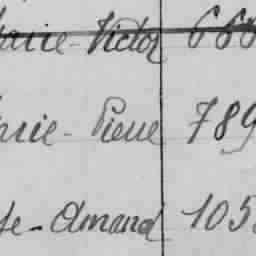 Marie-Victor 668
rie-Pierre 789
te-Amand 105